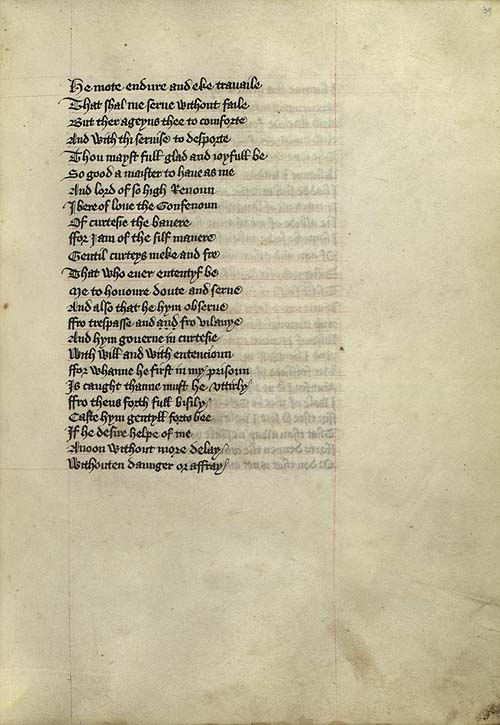 39
He mote endure and eke trauaile
That shal me serue without faile
But ther ageyns thee to comforte
And with thi seruise to desporte
Thou mayst full glad and ioyfull be
So good a maister to haue as me
And lord of so high Renoun
I bere of loue the Gonfenoun
Of curtesie the banere
ffor I am of the silf manere
Gentil curteys meke and fre
That who euer ententyf be
Me to honoure doute and serue
And also that he hym obserue
ffro trespasse and and fro vilanye
And hym gouerne in curtesie
With will and with entencioun
ffor whanne he first in my prisoun
Is caught thanne must he vttirly
ffro thens forth full bisily
Caste hym gentyll forto bee
If he desire helpe of me
Anoon without more delay
Withouten daunger or affray